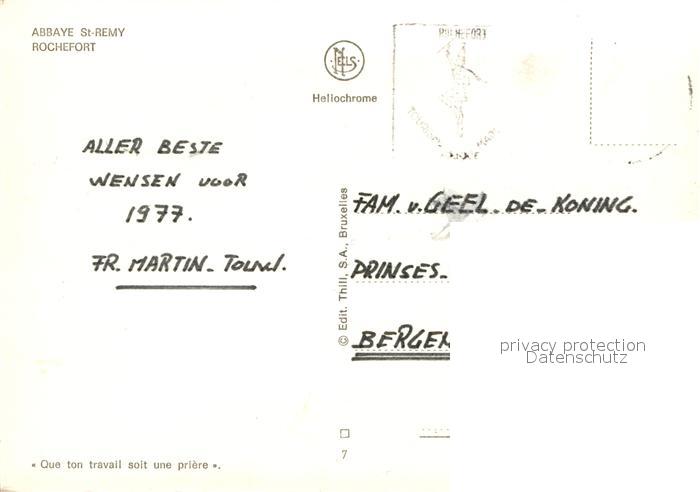 ABBAYE St-REMY
ROCHEFORT
NELS
Heliochrome
ROCHEFORT
ALLER BESTE
WENSEN VOOR
1977.
FR. MARTIN-TOUW.
© Edit. Thill, S.A., Bruxelles
FAM. v. GEEL-DE-KONING.
PRINSES-
BERGEN
privacy protection
Datenschutz
7
« Que ton travail soit une prière ».